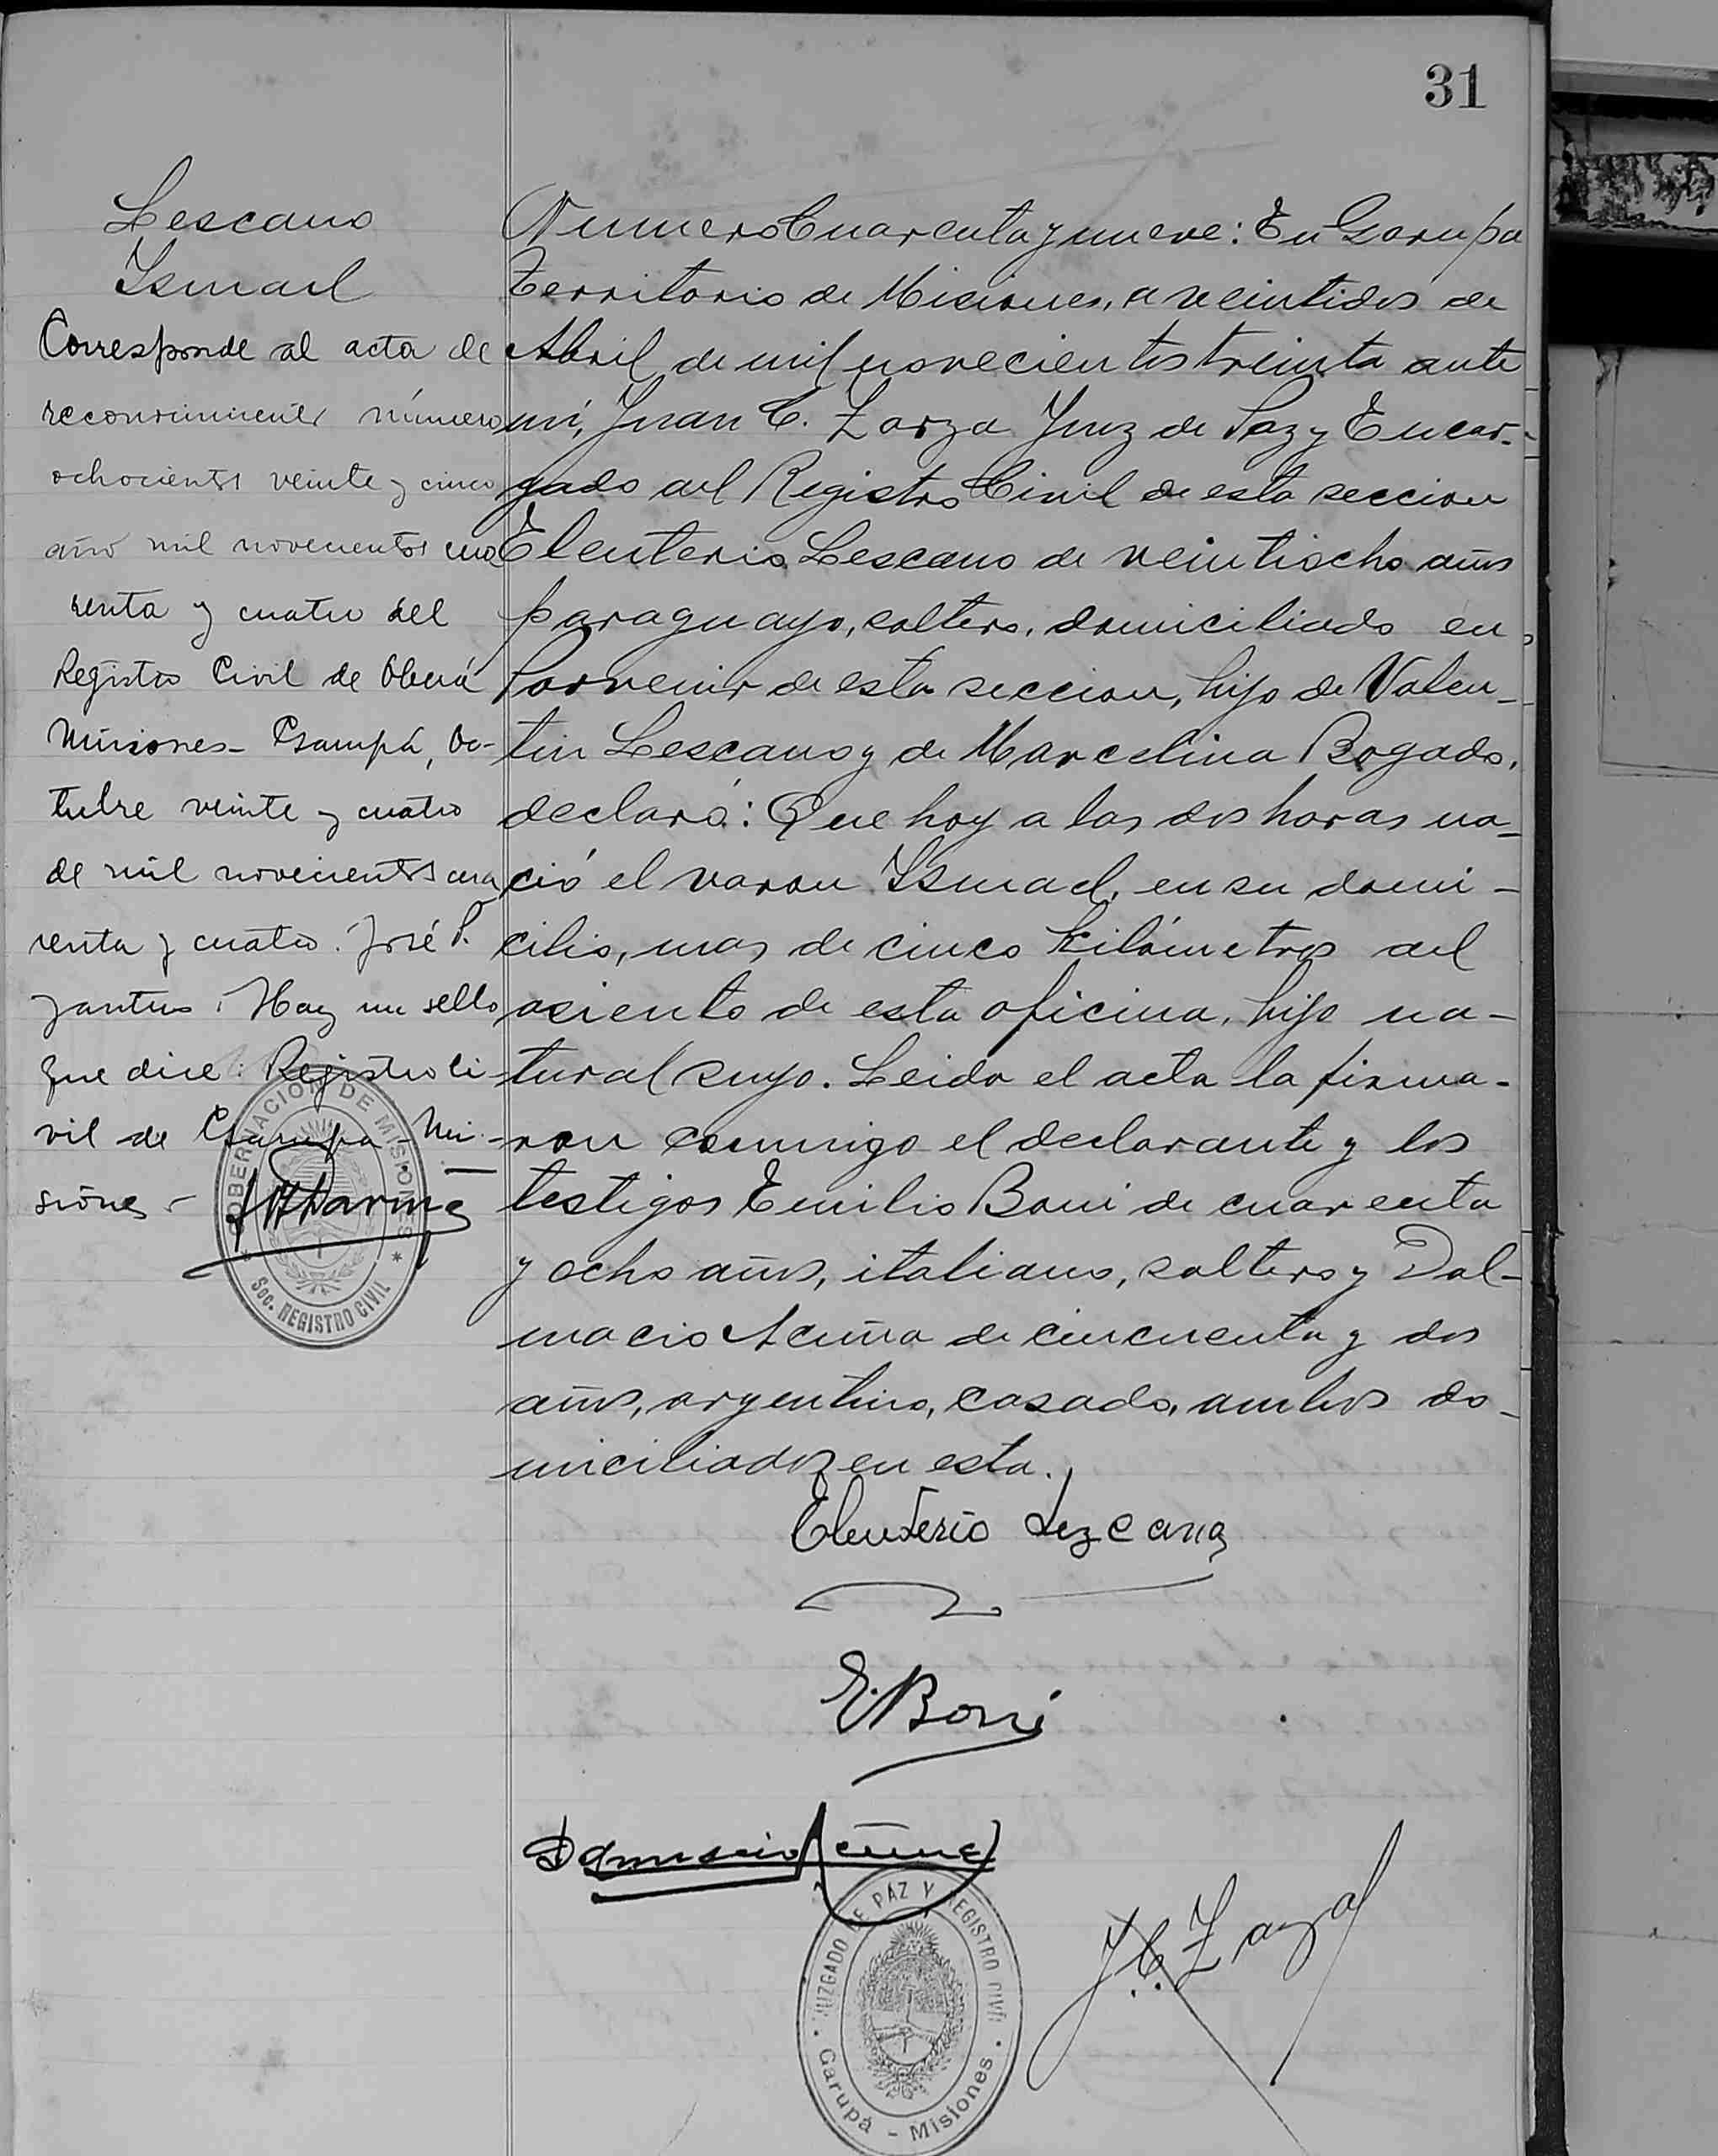 31
Lescano
Ismael
Corresponde al acta de
reconocimiento número
ochocientos veinte y cinco
año mil novecientos cua
renta y cuatro del
Registro Civil de Oberá
Misiones - Garupá, Oc-
tubre veinte y cuatro
de mil novecientos cua
renta y cuatro. José P.
Hay un sello
que dice: Registro Ci-
vil de Garupá - Mi-
siones -
GOBERNACION DE MISIONES
Sec. REGISTRO CIVIL
Numero Cuarenta y nueve: En Garupa
Territorio de Misiones, a veintidos de
Abril de mil novecientos treinta ante
mí, Juan C. Zarza Juez de Paz y Encar-
gado del Registro Civil de esta seccion
Eleuterio Lescano de veintiocho años
paraguayo, soltero, domiciliado en
Porvenir de esta seccion, hijo de Valen-
tin Lescano y de Marcelina Bogado,
declaró: Que hoy a las dos horas na-
ció el varon Ismael, en su domi-
cilio, mas de cinco kilómetros del
asiento de esta oficina, hijo na-
tural suyo. Leida el acta la firma-
ron conmigo el declarante y los
testigos Emilio Boni de cuarenta
y ocho años, italiano, soltero y Dal-
macio Acuña de cincuenta y dos
años, argentino, casado, ambos do-
miciliados en esta.
Eleuterio Lezcano
E. Boni
Damacio Acuña
J. C. Zarza
JUZGADO DE PAZ Y REGISTRO CIVIL
Garupá - Misiones